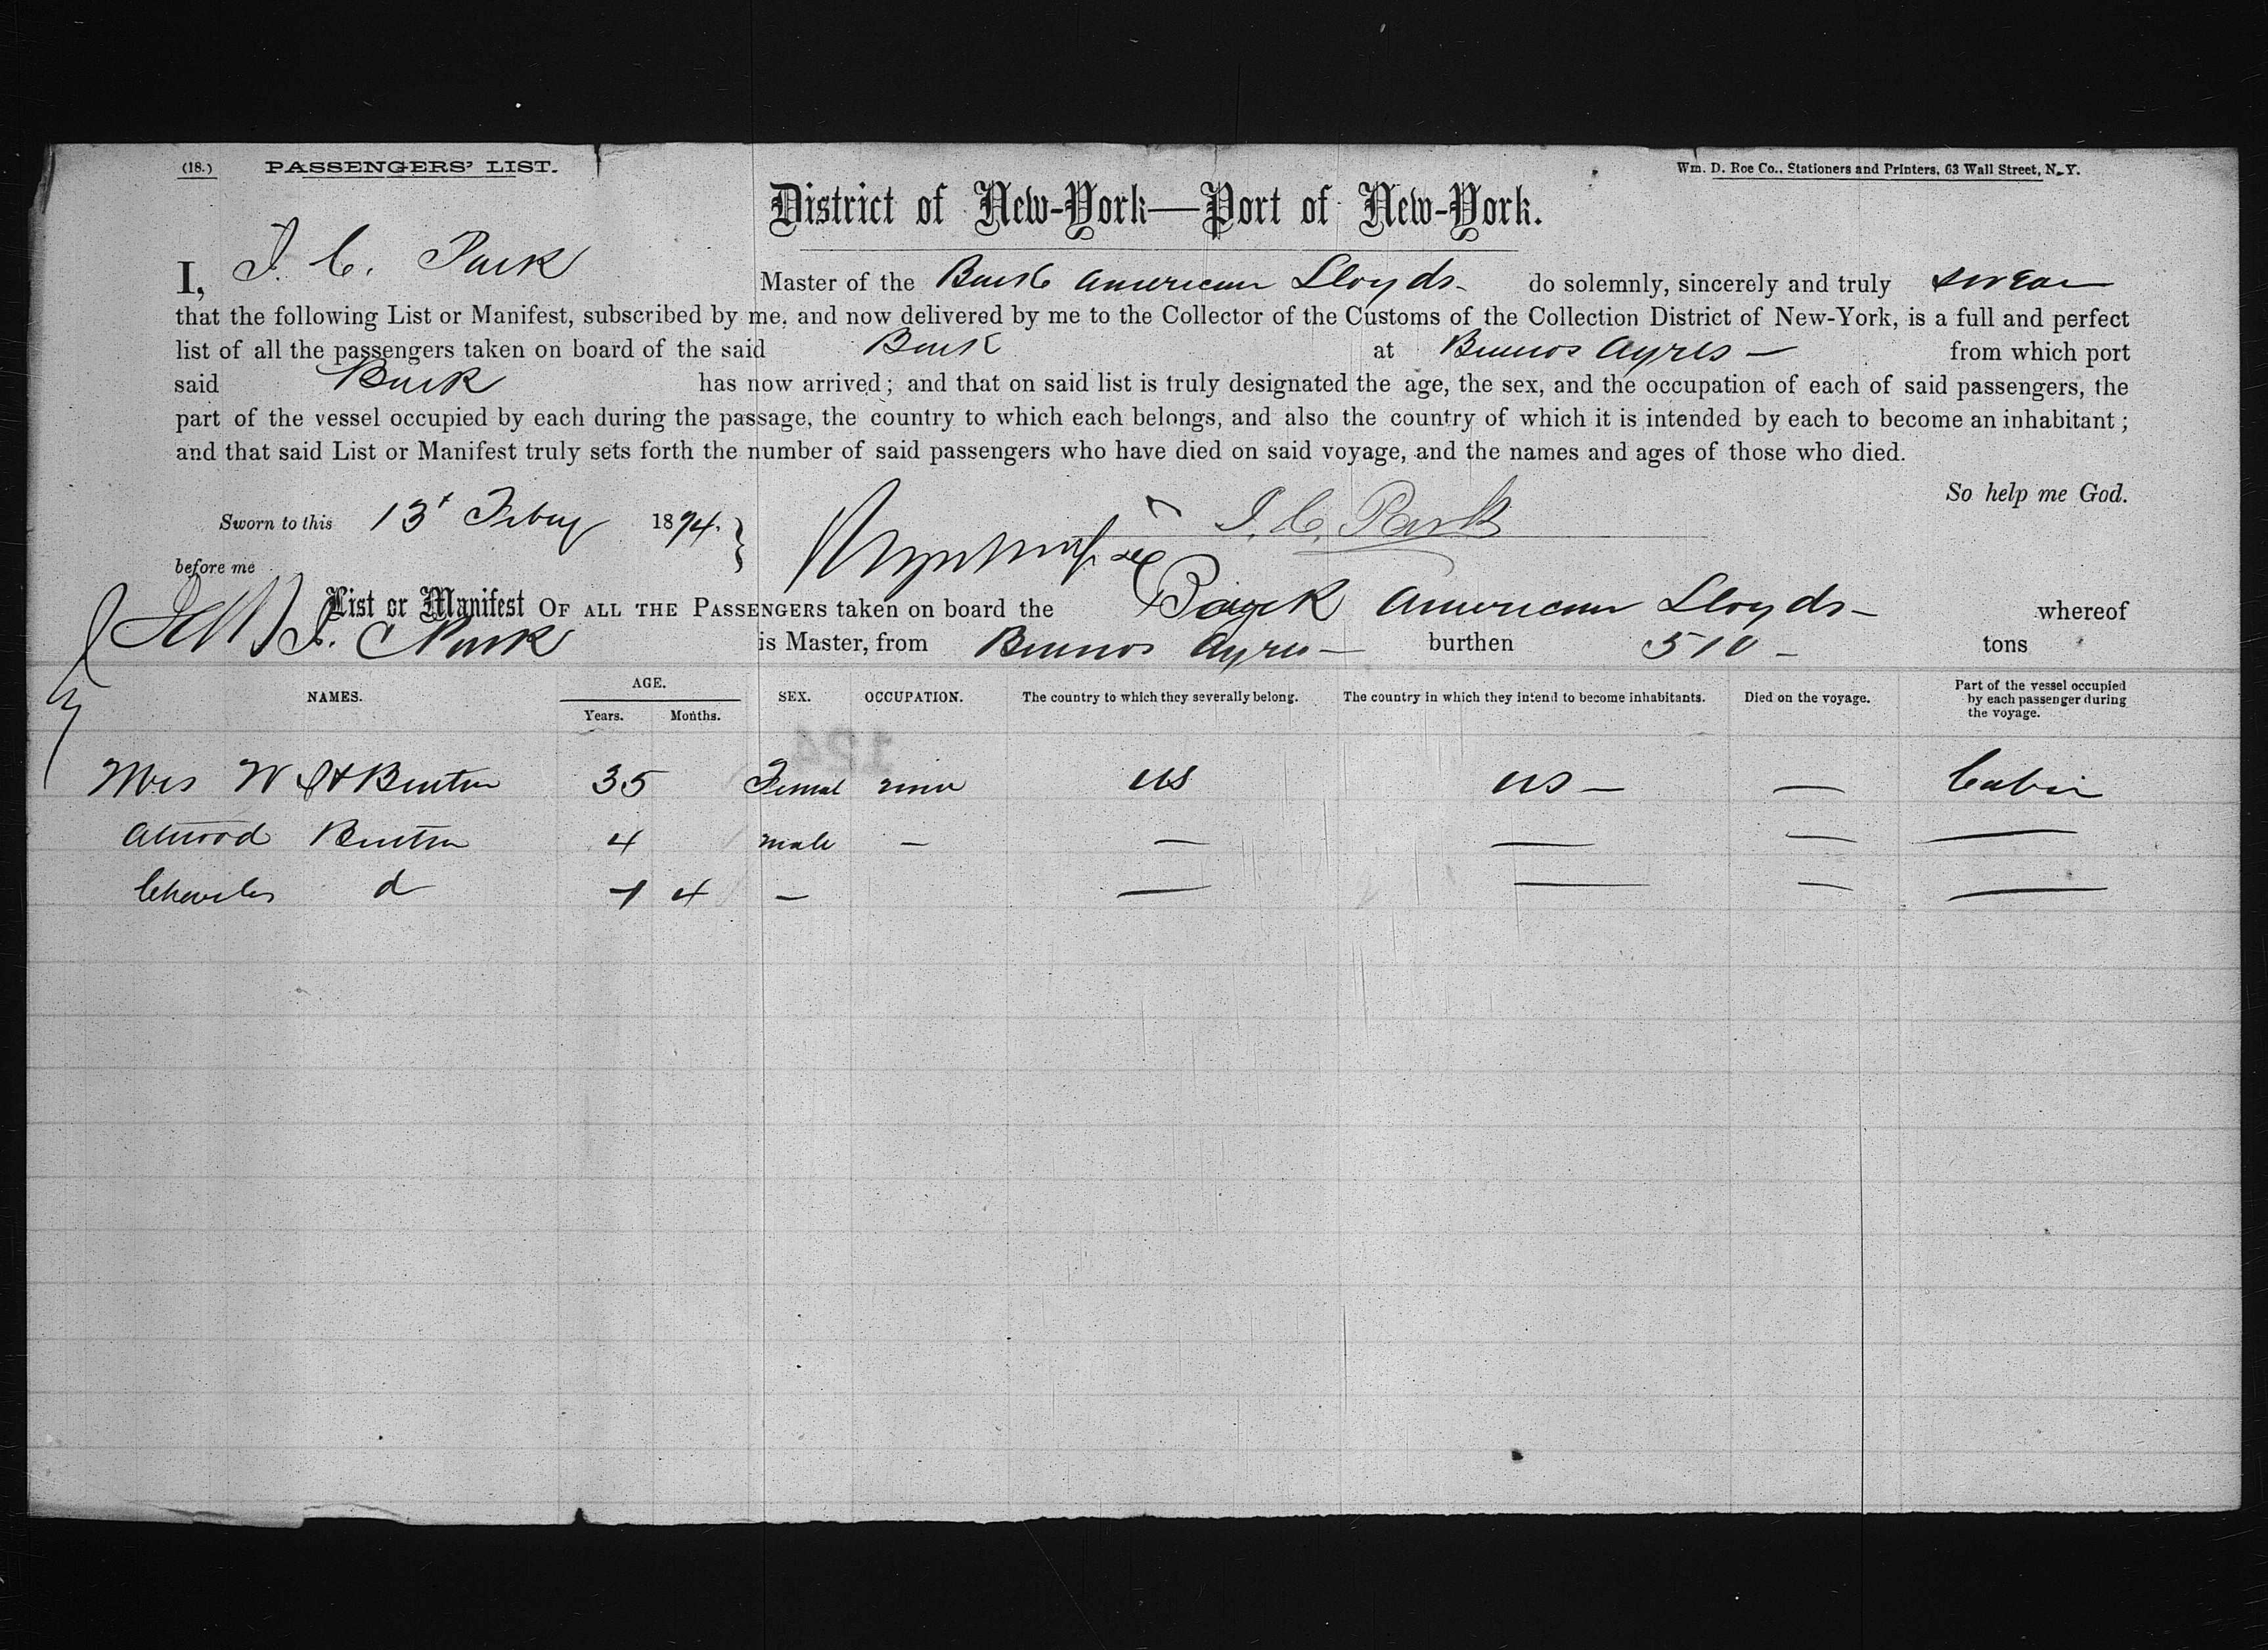 (18.) PASSENGERS' LIST. Wm. D. Roe Co., Stationers and Printers, 63 Wall Street, N.Y.
District of New-York—Port of New-York.
I, J. C. Park Master of the Bark American Lloyds do solemnly, sincerely and truly swear
that the following List or Manifest, subscribed by me, and now delivered by me to the Collector of the Customs of the Collection District of New-York, is a full and perfect
list of all the passengers taken on board of the said Bark at Buenos Ayres — from which port
said Bark has now arrived; and that on said list is truly designated the age, the sex, and the occupation of each of said passengers, the
part of the vessel occupied by each during the passage, the country to which each belongs, and also the country of which it is intended by each to become an inhabitant;
and that said List or Manifest truly sets forth the number of said passengers who have died on said voyage, and the names and ages of those who died.
So help me God.
Sworn to this 13 Feby 1894. J. C. Park
before me
List or Manifest OF ALL THE PASSENGERS taken on board the Bark American Lloyds — whereof
J. C Park is Master, from Buenos Ayres — burthen 510 — tons
NAMES. AGE. Years. Months. SEX. OCCUPATION. The country to which they severally belong. The country in which they intend to become inhabitants. Died on the voyage. Part of the vessel occupied by each passenger during the voyage.
Mrs W H Benton 35 Femal US US — — Cabin
Atwood Benton 4 male — — — — —
Charles d 1 4 — — — — —